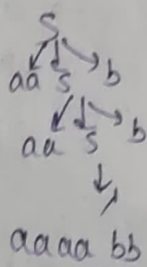 S
aa S b
aa S b
λ
aaaa bb